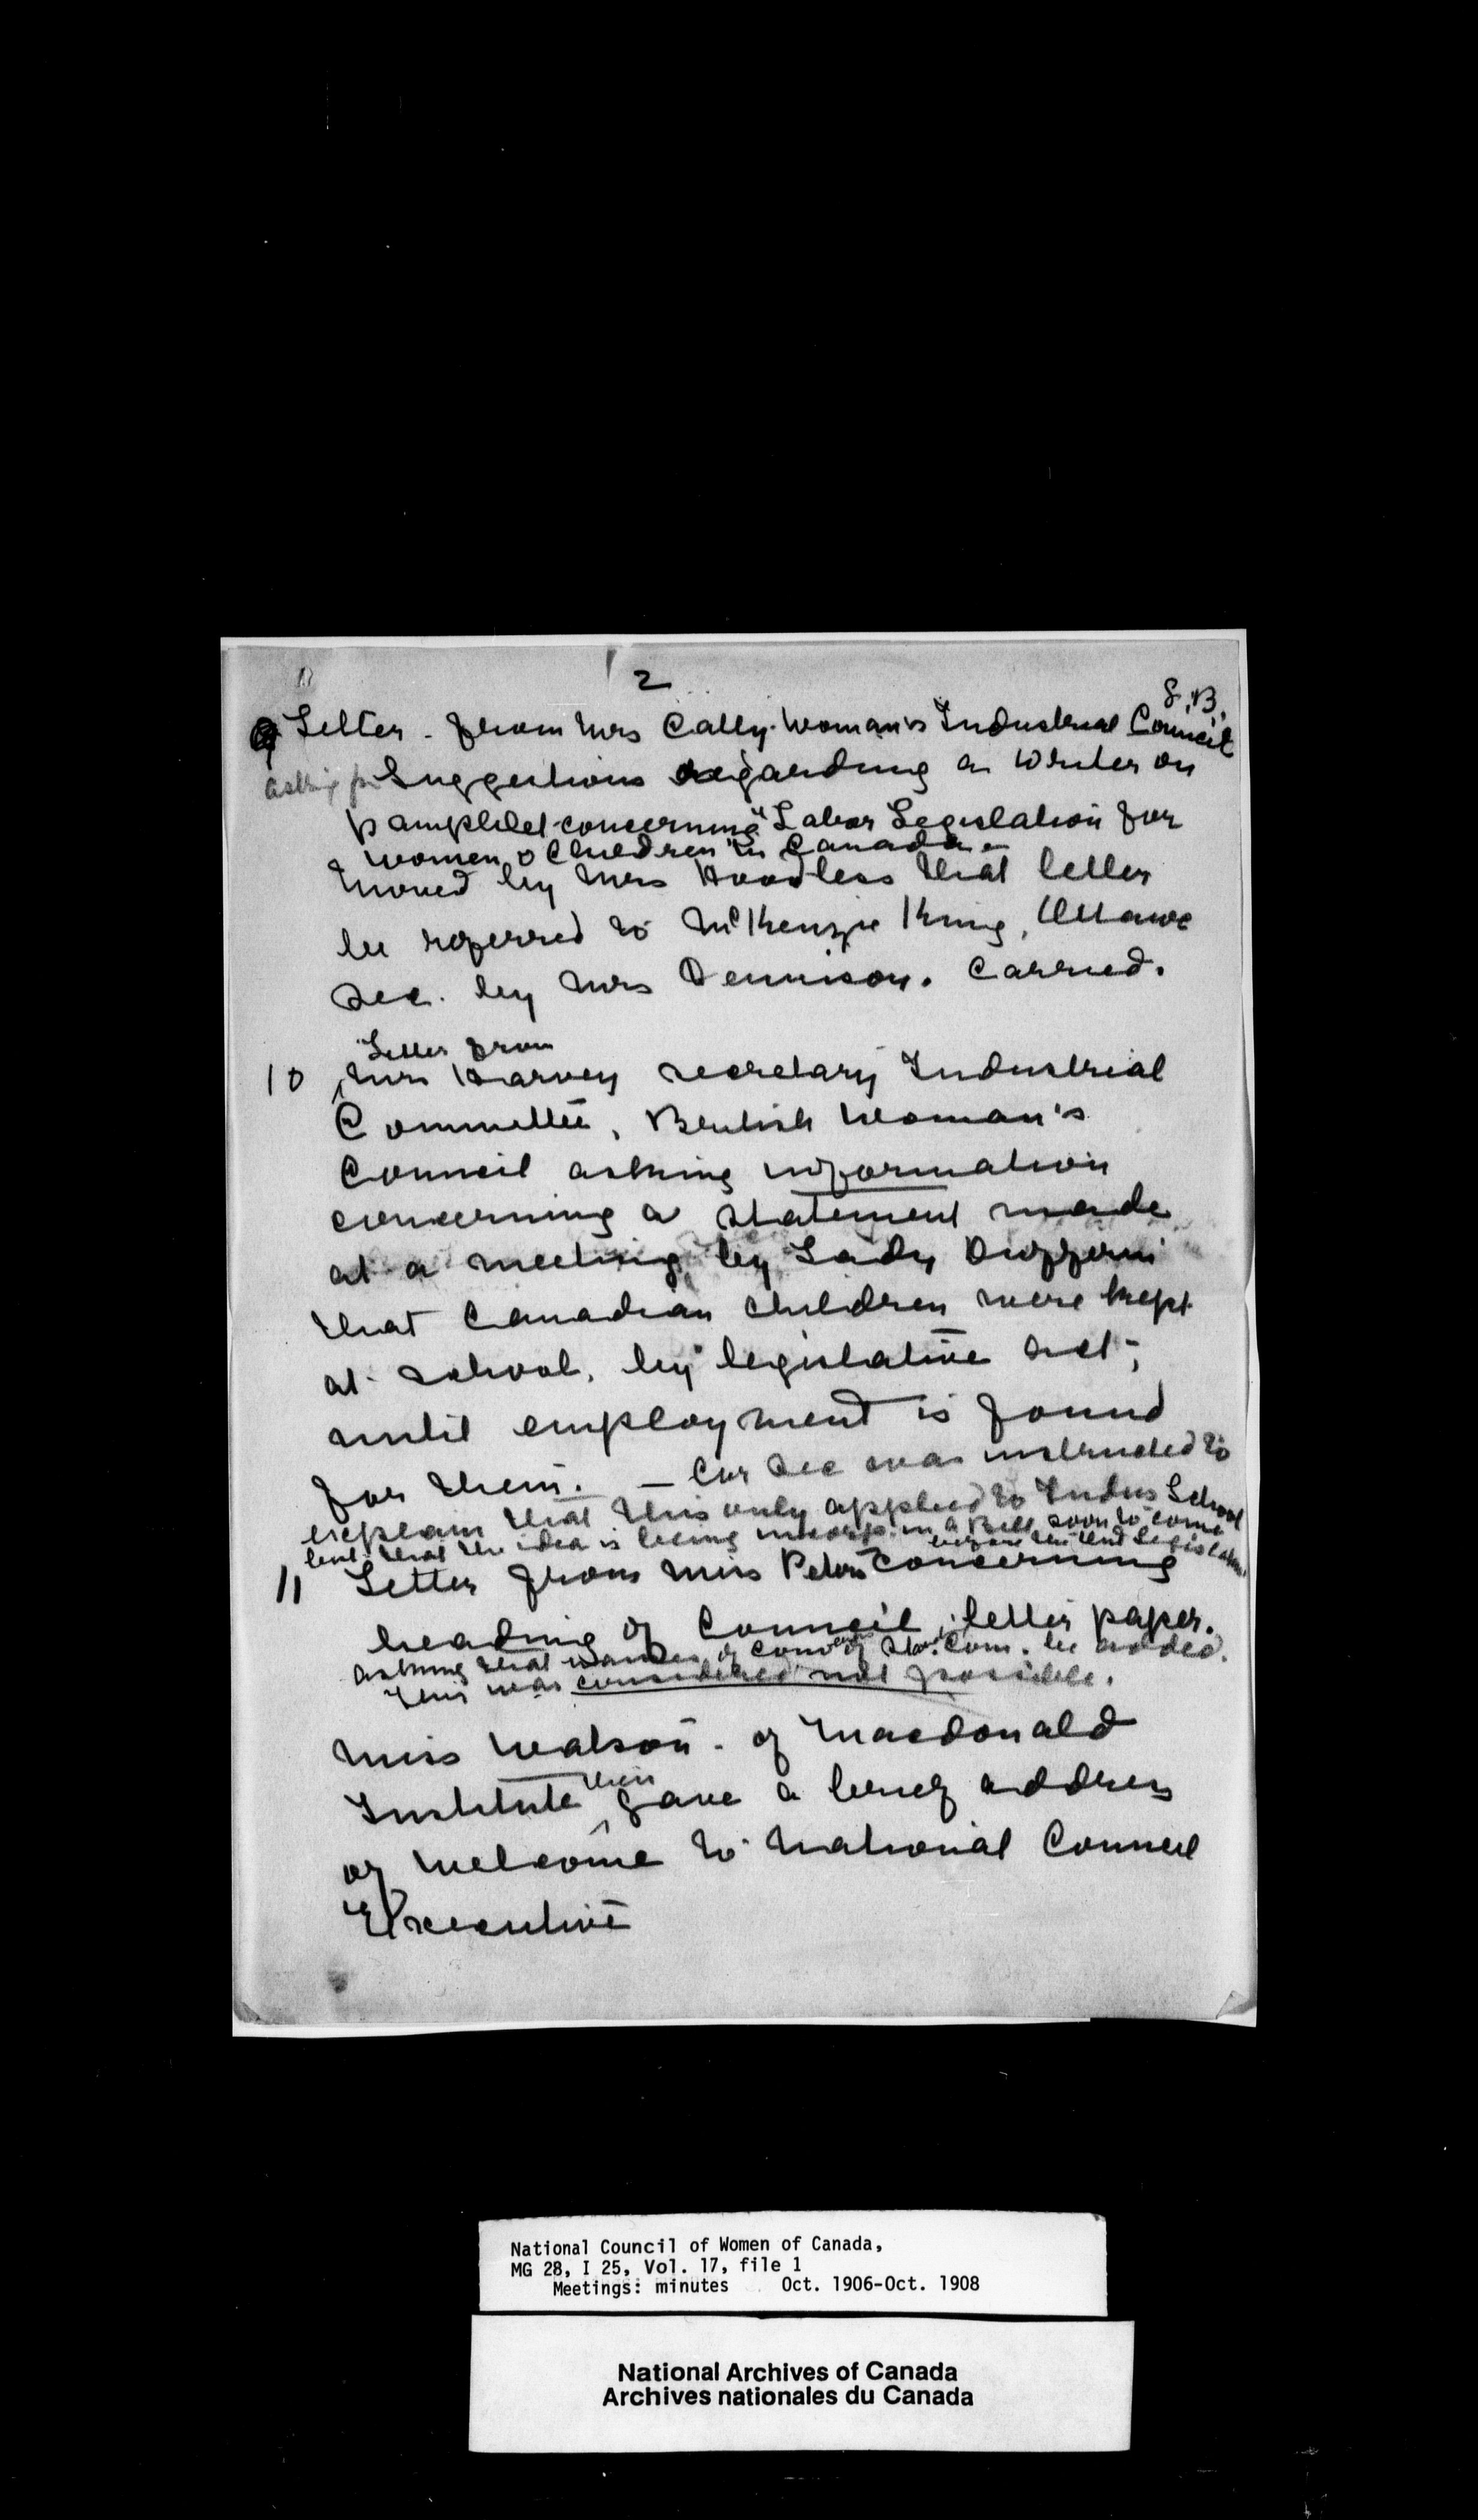 2
G.B.
9 Letter - from Mrs Cally Woman's Industrial Council
asking for Suggestions regarding a writer on
pamphlet concerning "Labor Legislation for
women & children" in Canada -
Moved by Mrs Hoodless that letter
be referred to McKenzie King, Ottawa
Sec. by Mrs Dennison. Carried.
Letter from
10 Mrs Harvey secretary Industrial
Committee, British Woman's
Council asking information
concerning a statement made
at a meeting by Lady Dufferin
that Canadian children were kept
at school, by legislative act,
until employment is found
for them. - Cor Sec was instructed to
explain that this only applied to Indus School
but that the idea is being incorp. in a Bill soon to come
before the Legislature
11 Letter from Miss Peters concerning
heading of Council letter paper.
asking that names of conveners of Stan. Com. be added.
This was considered not possible.
Miss Watson - of Macdonald
then
Institute gave a brief address
of welcome to National Council
Executive
National Council of Women of Canada,
MG 28, I 25, Vol. 17, file 1
Meetings: minutes Oct. 1906-Oct. 1908
National Archives of Canada
Archives nationales du Canada